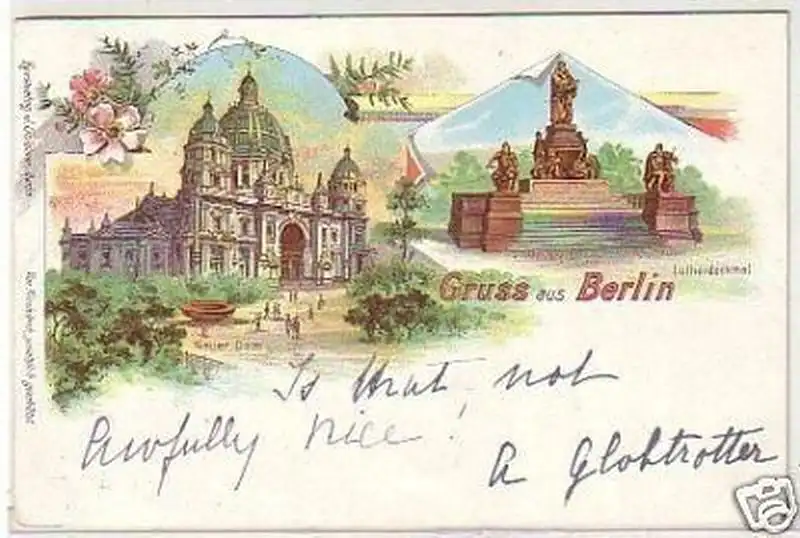 Gruss aus Berlin
Neuer Dom
Lutherdenkmal
Is that not
Awfully nice!
A Globtrotter